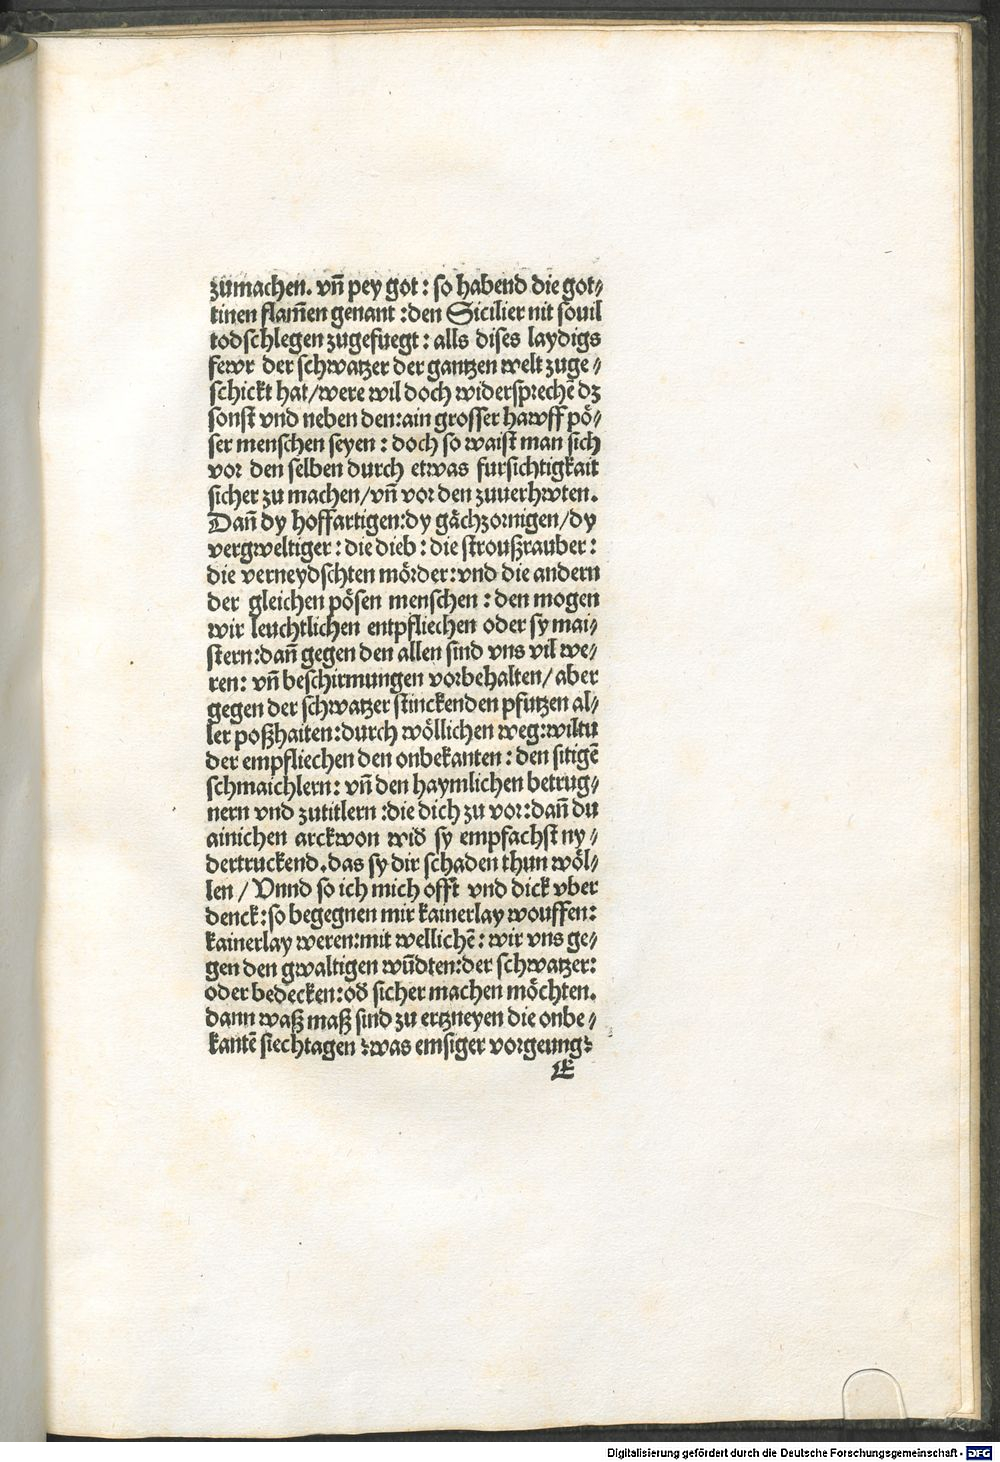 zůmachen. vñ pey got : so habend die got⸗
tinen flam̃en genant :den Sicilier nit souil
todschlegen zugefuegt : alls dises laydigs
fewr der schwatzer der gantzen welt zuge⸗
schickt hat/were wil doch widersprechē dz
sonst vnd neben den:ain grosser hawff pö⸗
ser menschen seyen : doch so waist man sich
vor den selben durch etwas fursichtigkait
sicher zu machen/vñ vor den zuuerhwten.
Dañ dy hoffartigen:dy gächzornigen/dy
vergweltiger : die dieb : die stroußrauber :
die verneydschten mörder:vnd die andern
der gleichen pösen menschen : den mogen
wir leuchtlichen entpfliechen oder sy mai⸗
stern:dañ gegen den allen sind vns vil we⸗
ren: vñ beschirmungen vorbehalten/ aber
gegen der schwatzer stinckenden pfutzen al⸗
ler poßhaiten:durch wöllichen weg:wiltu
der empfliechen den onbekanten : den sitigē
schmaichlern: vñ den haymlichen betrug⸗
nern vnd zutitlern :die dich zu vor:dañ du
ainichen arckwon wid̛ sy empfachst ny⸗
dertruckend.das sy dir schaden thun wöl⸗
len / Vnnd so ich mich offt vnd dick vber
denck:so begegnen mir kainerlay wouffen:
kainerlay weren:mit wellichē : wir vns ge⸗
gen den gwaltigen wūdten:der schwatzer:
oder bedecken:od̛ sicher machen möchten.
dann waß maß sind zu ertzneyen die onbe⸗
kantē siechtagen ꝛwas emsiger vorgeungꝛ
E
Digitalisierung gefördert durch die Deutsche Forschungsgemeinschaft - DFG